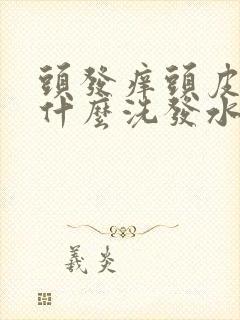 頭發痒頭皮
什麼洗發水
義炎